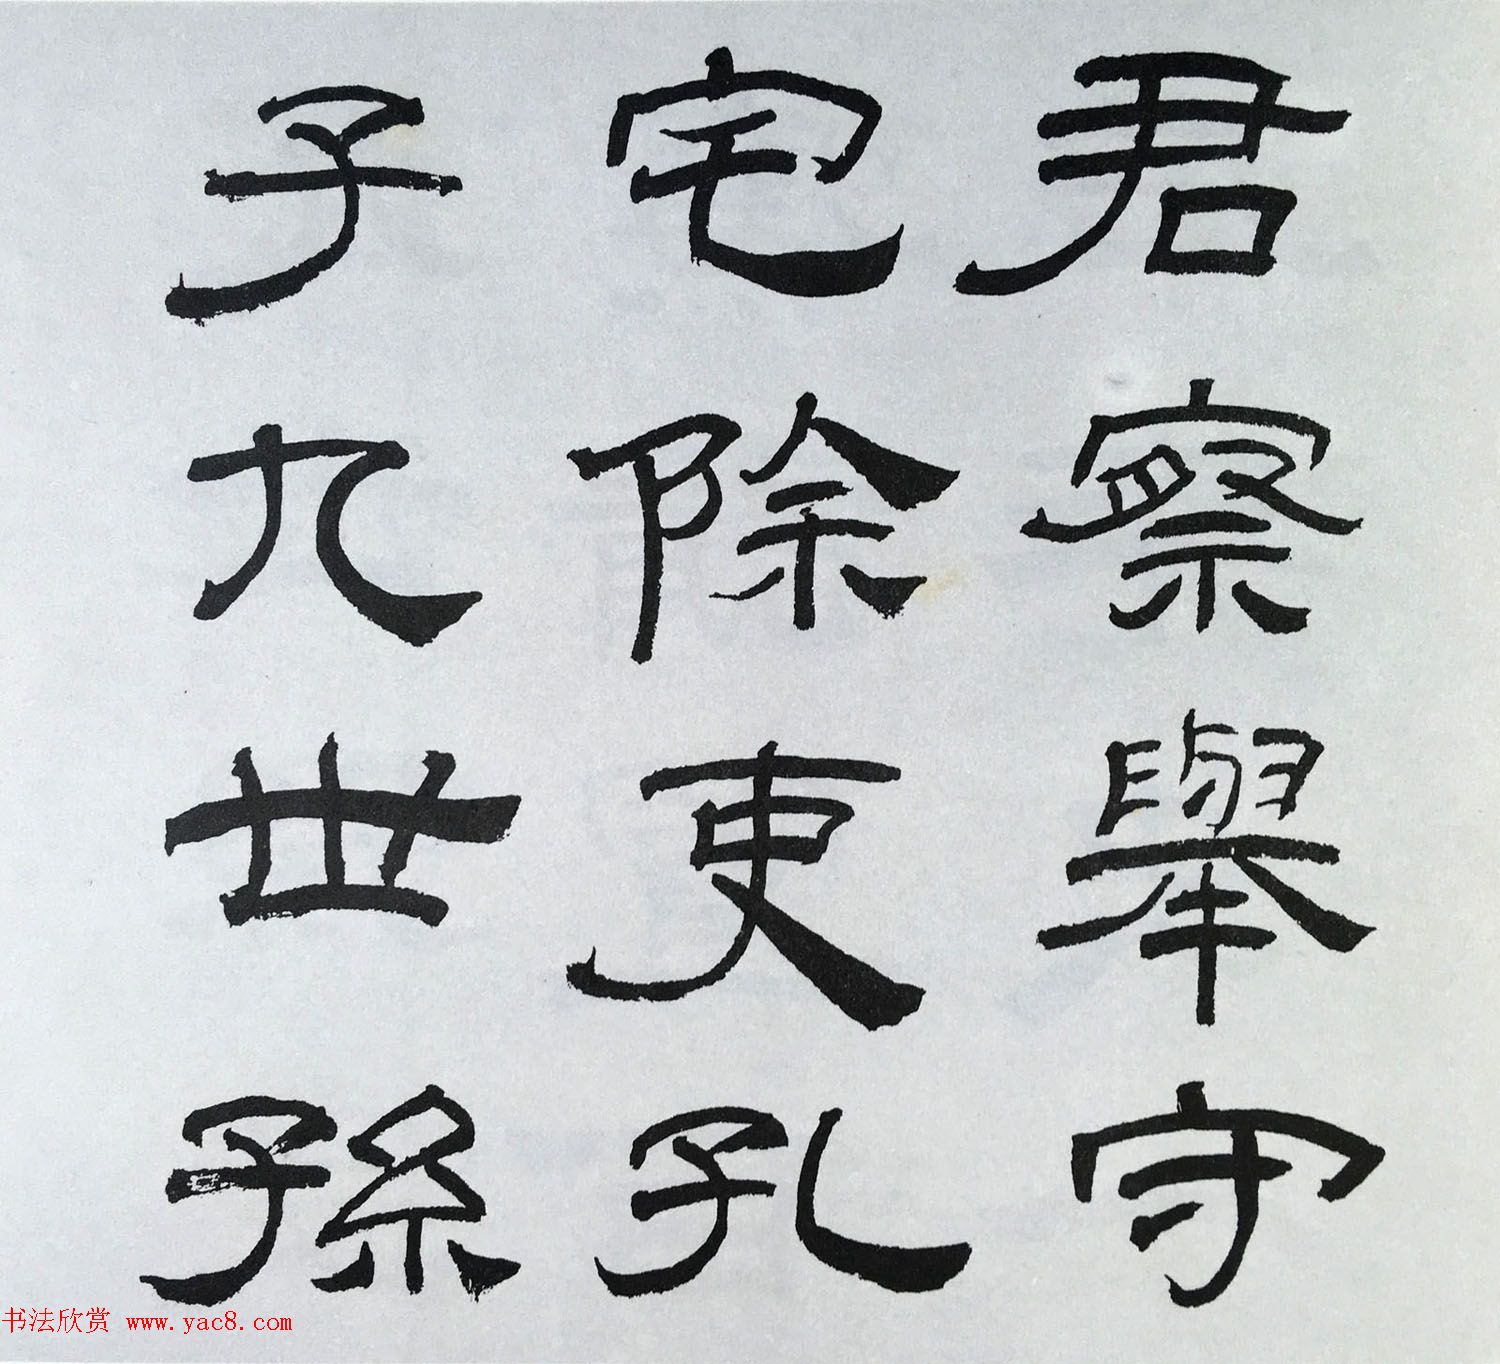 君察舉守
宅除吏孔
子九世孫
书法欣赏 www.yac8.com